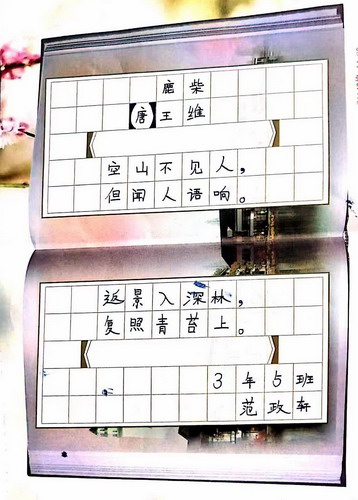 鹿柴
唐王维
空山不见人，
但闻人语响。
返景入深林，
复照青苔上。
3年5班
范政轩